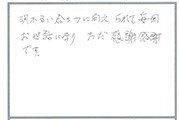 明かるい会さつに向えられて毎回
お世話になり ただ感謝感謝
です。